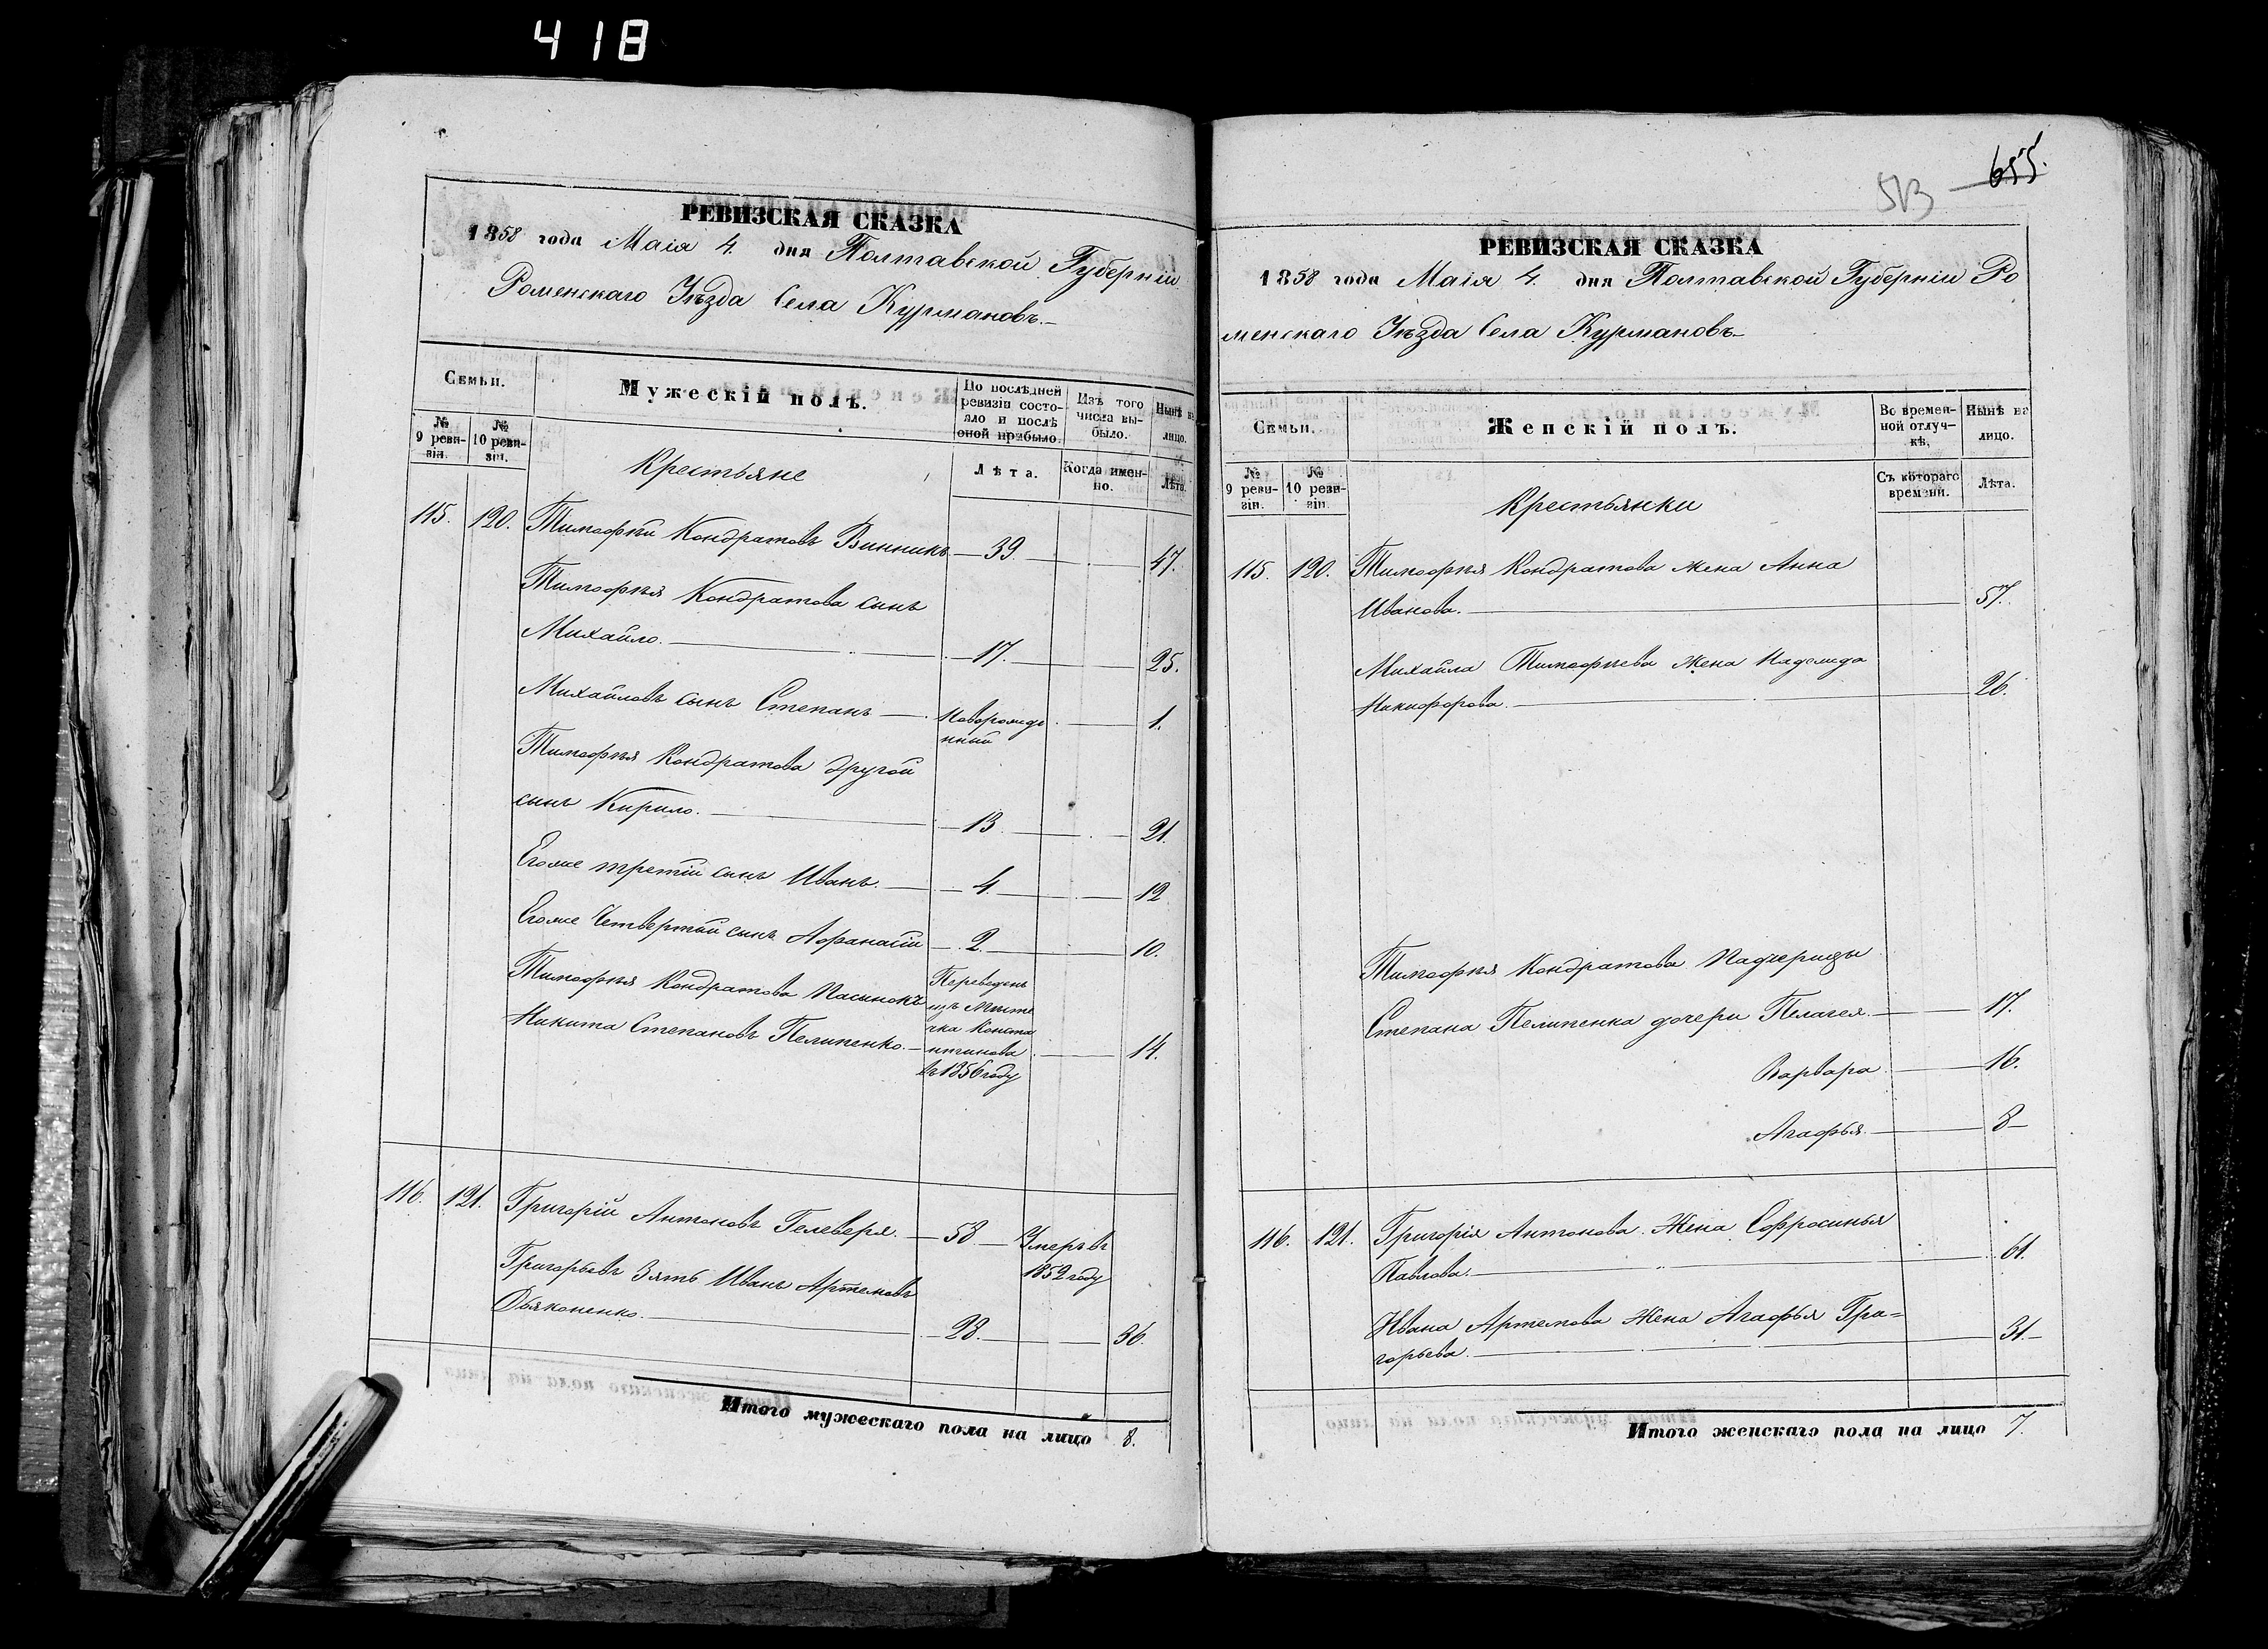 418
РЕВИЗСКАЯ СКАЗКА
1858 года Маія 4. дня Полтавской Губерніи
Роменскаго Уѣзда Села Курмановъ.
Семьи.
Мужескій полъ.
По послѣдней ревизіи состояло и послѣ оной прибыло.
Изъ того числа выбыло.
Нынѣ на лицо.
№ 9 ревизіи.
№ 10 ревизіи.
Лѣта.
Когда именно.
Лѣта.
Крестьяне
115. 120. Тимофѣй Кондратовъ Винникъ 39. 47.
Тимофѣя Кондратова сынъ
Михайло. 17. 25.
Михайловъ сынъ Степанъ Новорожденный 1.
Тимофѣя Кондратова другой
сынъ Кирило. 13. 21.
Егоже третій сынъ Иванъ. 4. 12
Егоже Четвертый сынъ Афанасій 2. 10.
Тимофѣя Кондратова Пасынокъ
Никита Степановъ Пелипенко. 14.
Переведенъ
изъ Мѣсте
чка Конста
нтинова
въ 1856 году
116. 121. Григорій Антоновъ Гелеверя. 58 Умеръ въ
1852 году
Григорьевъ Зять Иванъ Артемовъ
Дьяконенко. 28. 36.
Итого мужескаго пола на лицо 8.
513 655.
РЕВИЗСКАЯ СКАЗКА
1858 года Маія 4. дня Полтавской Губерніи Ро
менскаго Уѣзда Села Курмановъ
Семьи.
Женскій полъ.
Во временной отлучкѣ,
Нынѣ на лицо.
№ 9 ревизіи.
№ 10 ревизіи.
Съ котораго времени.
Лѣта.
Крестьянки
115. 120. Тимофѣя Кондратова жена Анна
Иванова. 57.
Михайла Тимофѣева жена Надежда
Никифорова. 26.
Тимофѣя Кондратова Падчерицы
Степана Пелипенка дочери Пелагея. 17.
Варвара 16.
Агафья. 8
116. 121. Григорія Антонова Жена Софросинья
Павлова. 61.
Ивана Артемова Жена Агафья Гри=
горьева. 31.
Итого женскаго пола на лицо 7.